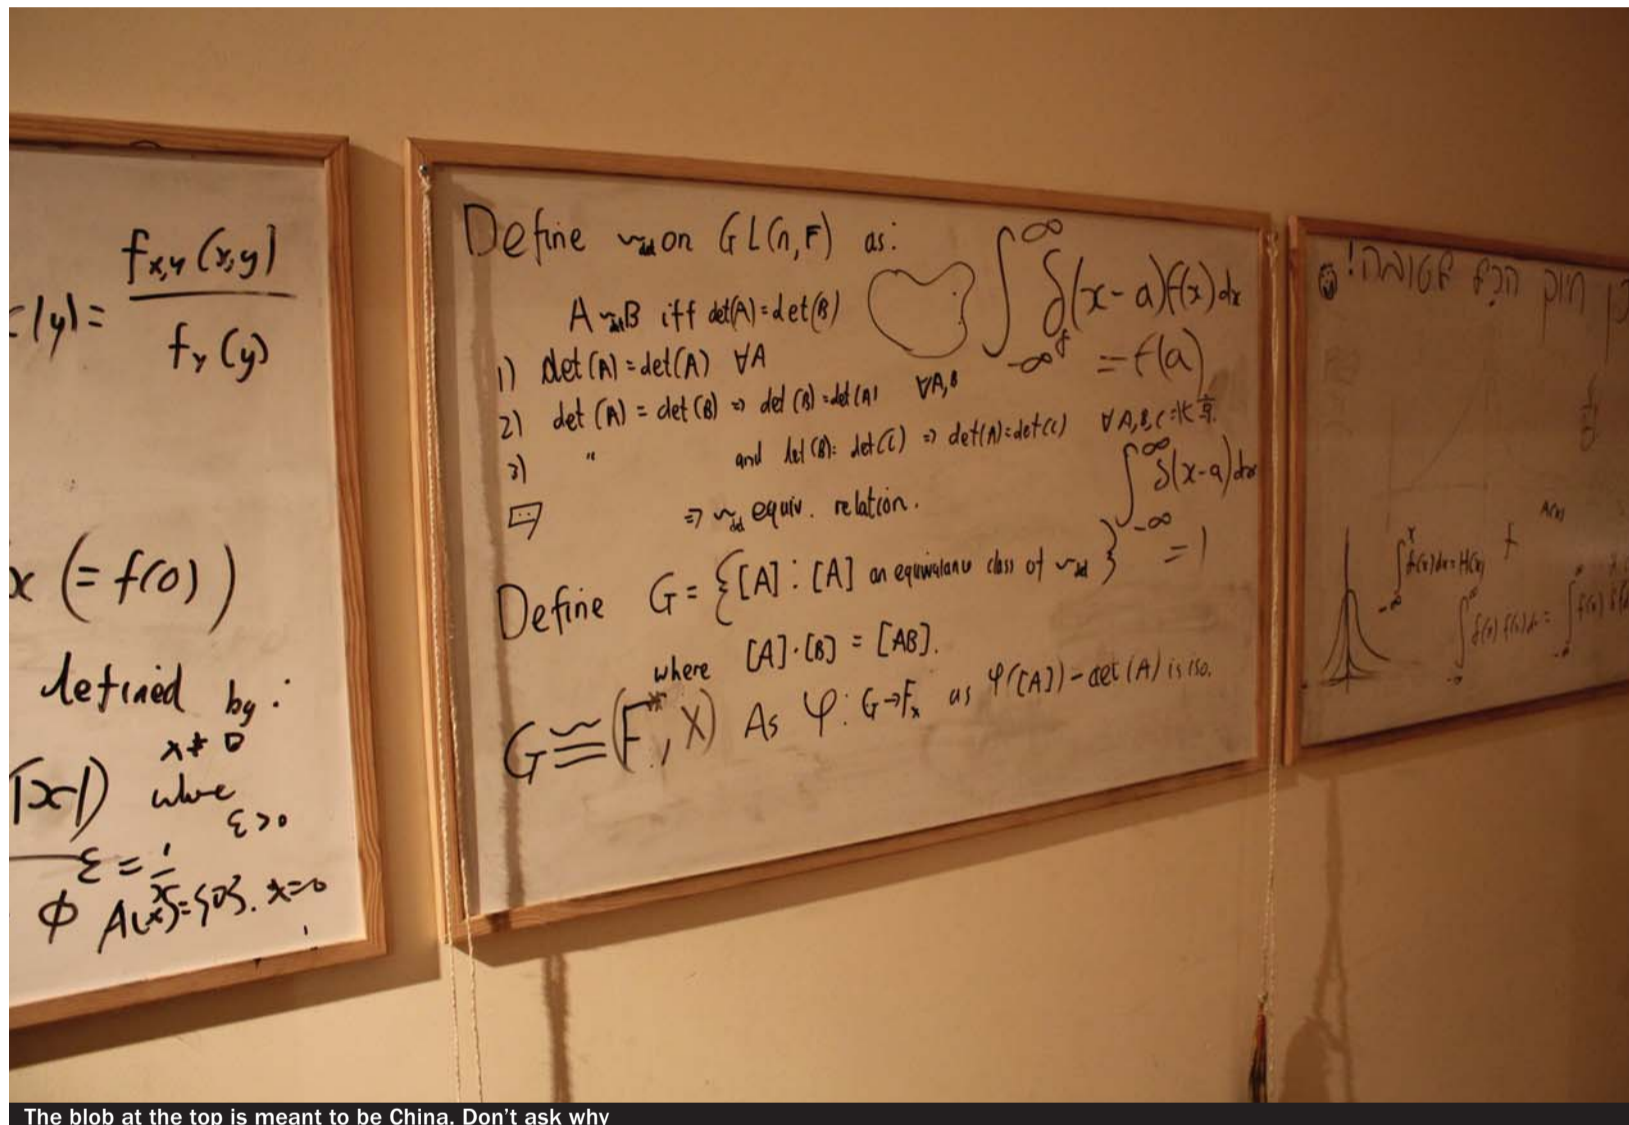 f_{x,y}(x,y)
(y) =
f_y(y)
x (= f(0))
defined by:
x ≠ 0
(|x|) where
ε > 0
ε = 1/x
φ A(x) = {0}. x=0
Define ~det on GL(n,F) as:
A ~det B iff det(A) = det(B)
1) det(A) = det(A) ∀A
2) det(A) = det(B) => det(B) = det(A) ∀A,B
3) " and det(B) = det(C) => det(A) = det(C) ∀A,B,C
=> ~det equiv. relation.
Define G = {[A] : [A] an equivalence class of ~det}
where [A]·[B] = [AB].
G ≅ (F*, X) As φ: G→Fₓ as φ([A]) = det(A) is iso.
∫_{-∞}^{∞} δ(x-a)f(x)dx
= f(a)
∫_{-∞}^{∞} δ(x-a)dx
= 1
A(x)
∫_{-∞}^{x} δ(x)dx = H(x)
The blob at the top is meant to be China. Don't ask why